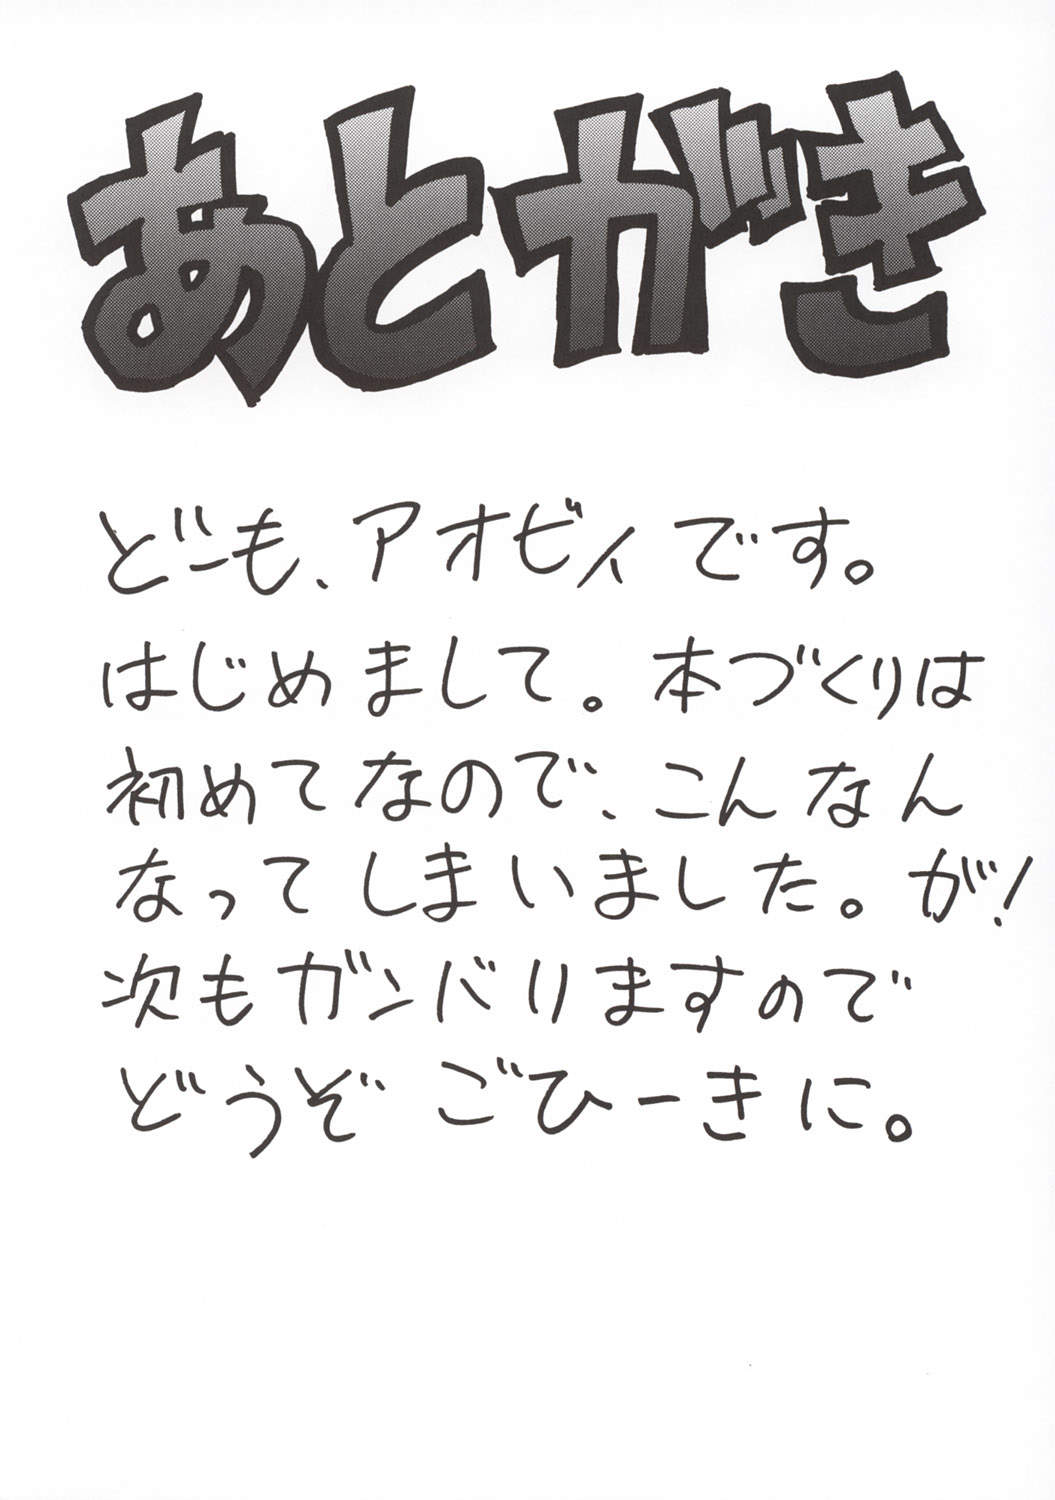 あとがき
どーも、アオビィです。
はじめまして。本づくりは
初めてなので、こんなん
なってしまいました。が!
次もガンバりますので
どうぞごひーきに。